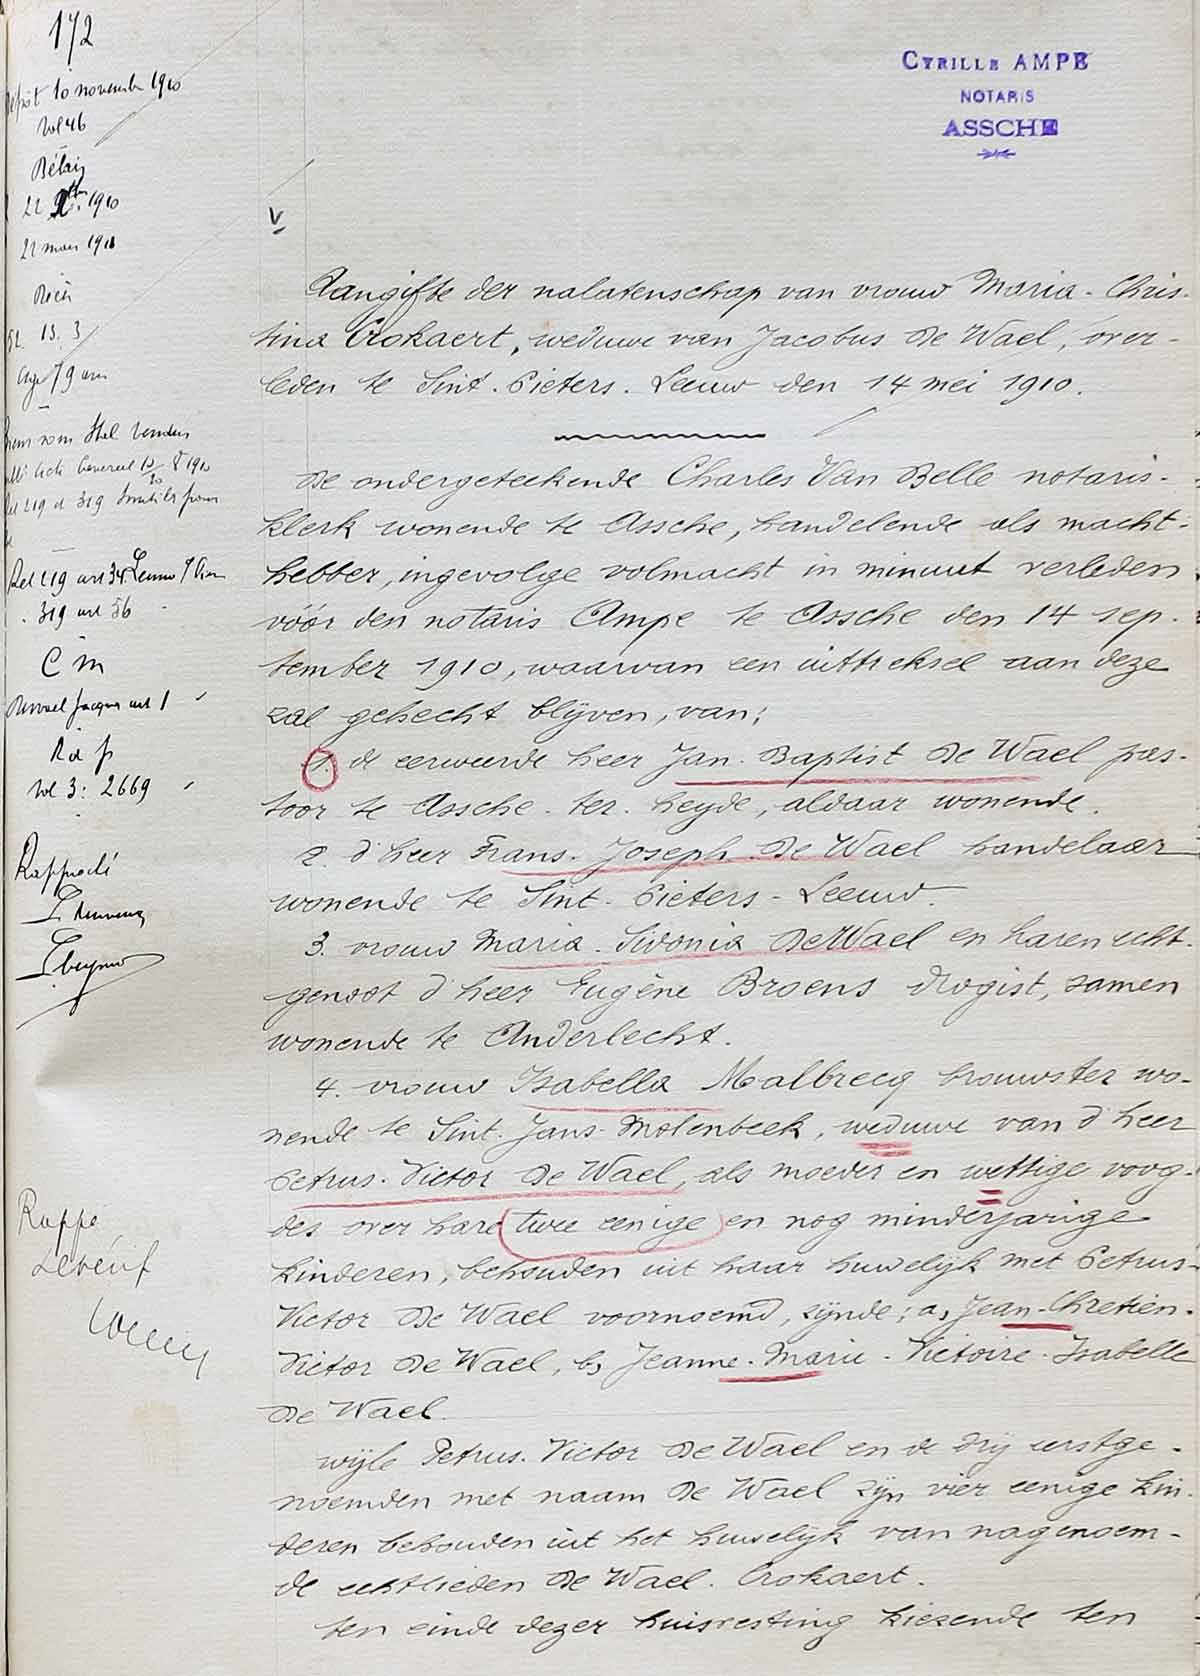 172
CYRILLE AMPE
NOTARIS
ASSCHE
10 november 1910
Vol 46
Délai
22 1910
22 mars 1911
13. 3
Age 79 ans
Rel 219 art 34 Leeuw
319 art 56
C M
art 1
vol 3: 2669
Aangifte der nalatenschap van vrouw Maria-Chris-
tina Crokaert, weduwe van Jacobus De Wael, over-
leden te Sint-Pieters-Leeuw den 14 mei 1910.
De ondergeteekende Charles Van Belle notaris-
klerk wonende te Assche, handelende als macht-
hebber, ingevolge volmacht in minuut verleden
vóór den notaris Ampe te Assche den 14 sep-
tember 1910, waarvan een uittreksel aan deze
zal gehecht blijven, van;
1. de eerweerde heer Jan-Baptist De Wael pas-
toor te Assche-ter-heyde, aldaar wonende.
2. d'heer Frans-Joseph De Wael handelaar
wonende te Sint-Pieters-Leeuw.
3. vrouw Maria-Sidonia De Wael en haren echt-
genoot d'heer Eugène Broens drogist, samen
wonende te Anderlecht.
4. vrouw Isabella Malbrecq brouwster wo-
nende te Sint-Jans-Molenbeek, weduwe van d'heer
Petrus-Victor De Wael, als moeder en wettige voog-
des over hare twee eenige en nog minderjarige
kinderen, behouden uit haar huwelijk met Petrus-
Victor De Wael voornoemd, zijnde; a, Jean-Chretien-
Victor De Wael, b, Jeanne-Marie-Victoire-Isabelle
De Wael.
wijle Petrus-Victor De Wael en de drij eerstge-
noemden met naam De Wael zijn vier eenige kin-
deren behouden uit het huwelijk van nagenoem-
de echtlieden De Wael-Crokaert.
ten einde dezer huisvesting kiezende ten